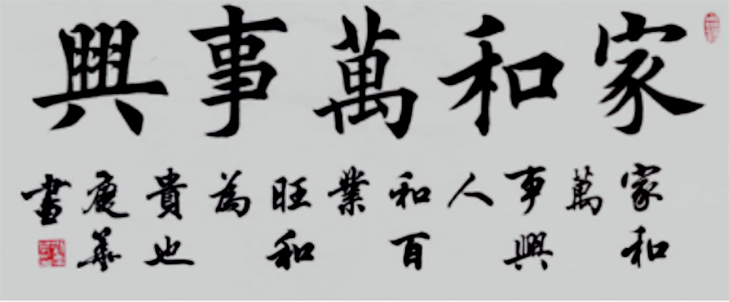 家和萬事興
家和
萬
事興
人
和百
業
旺和
為
貴也
華
書